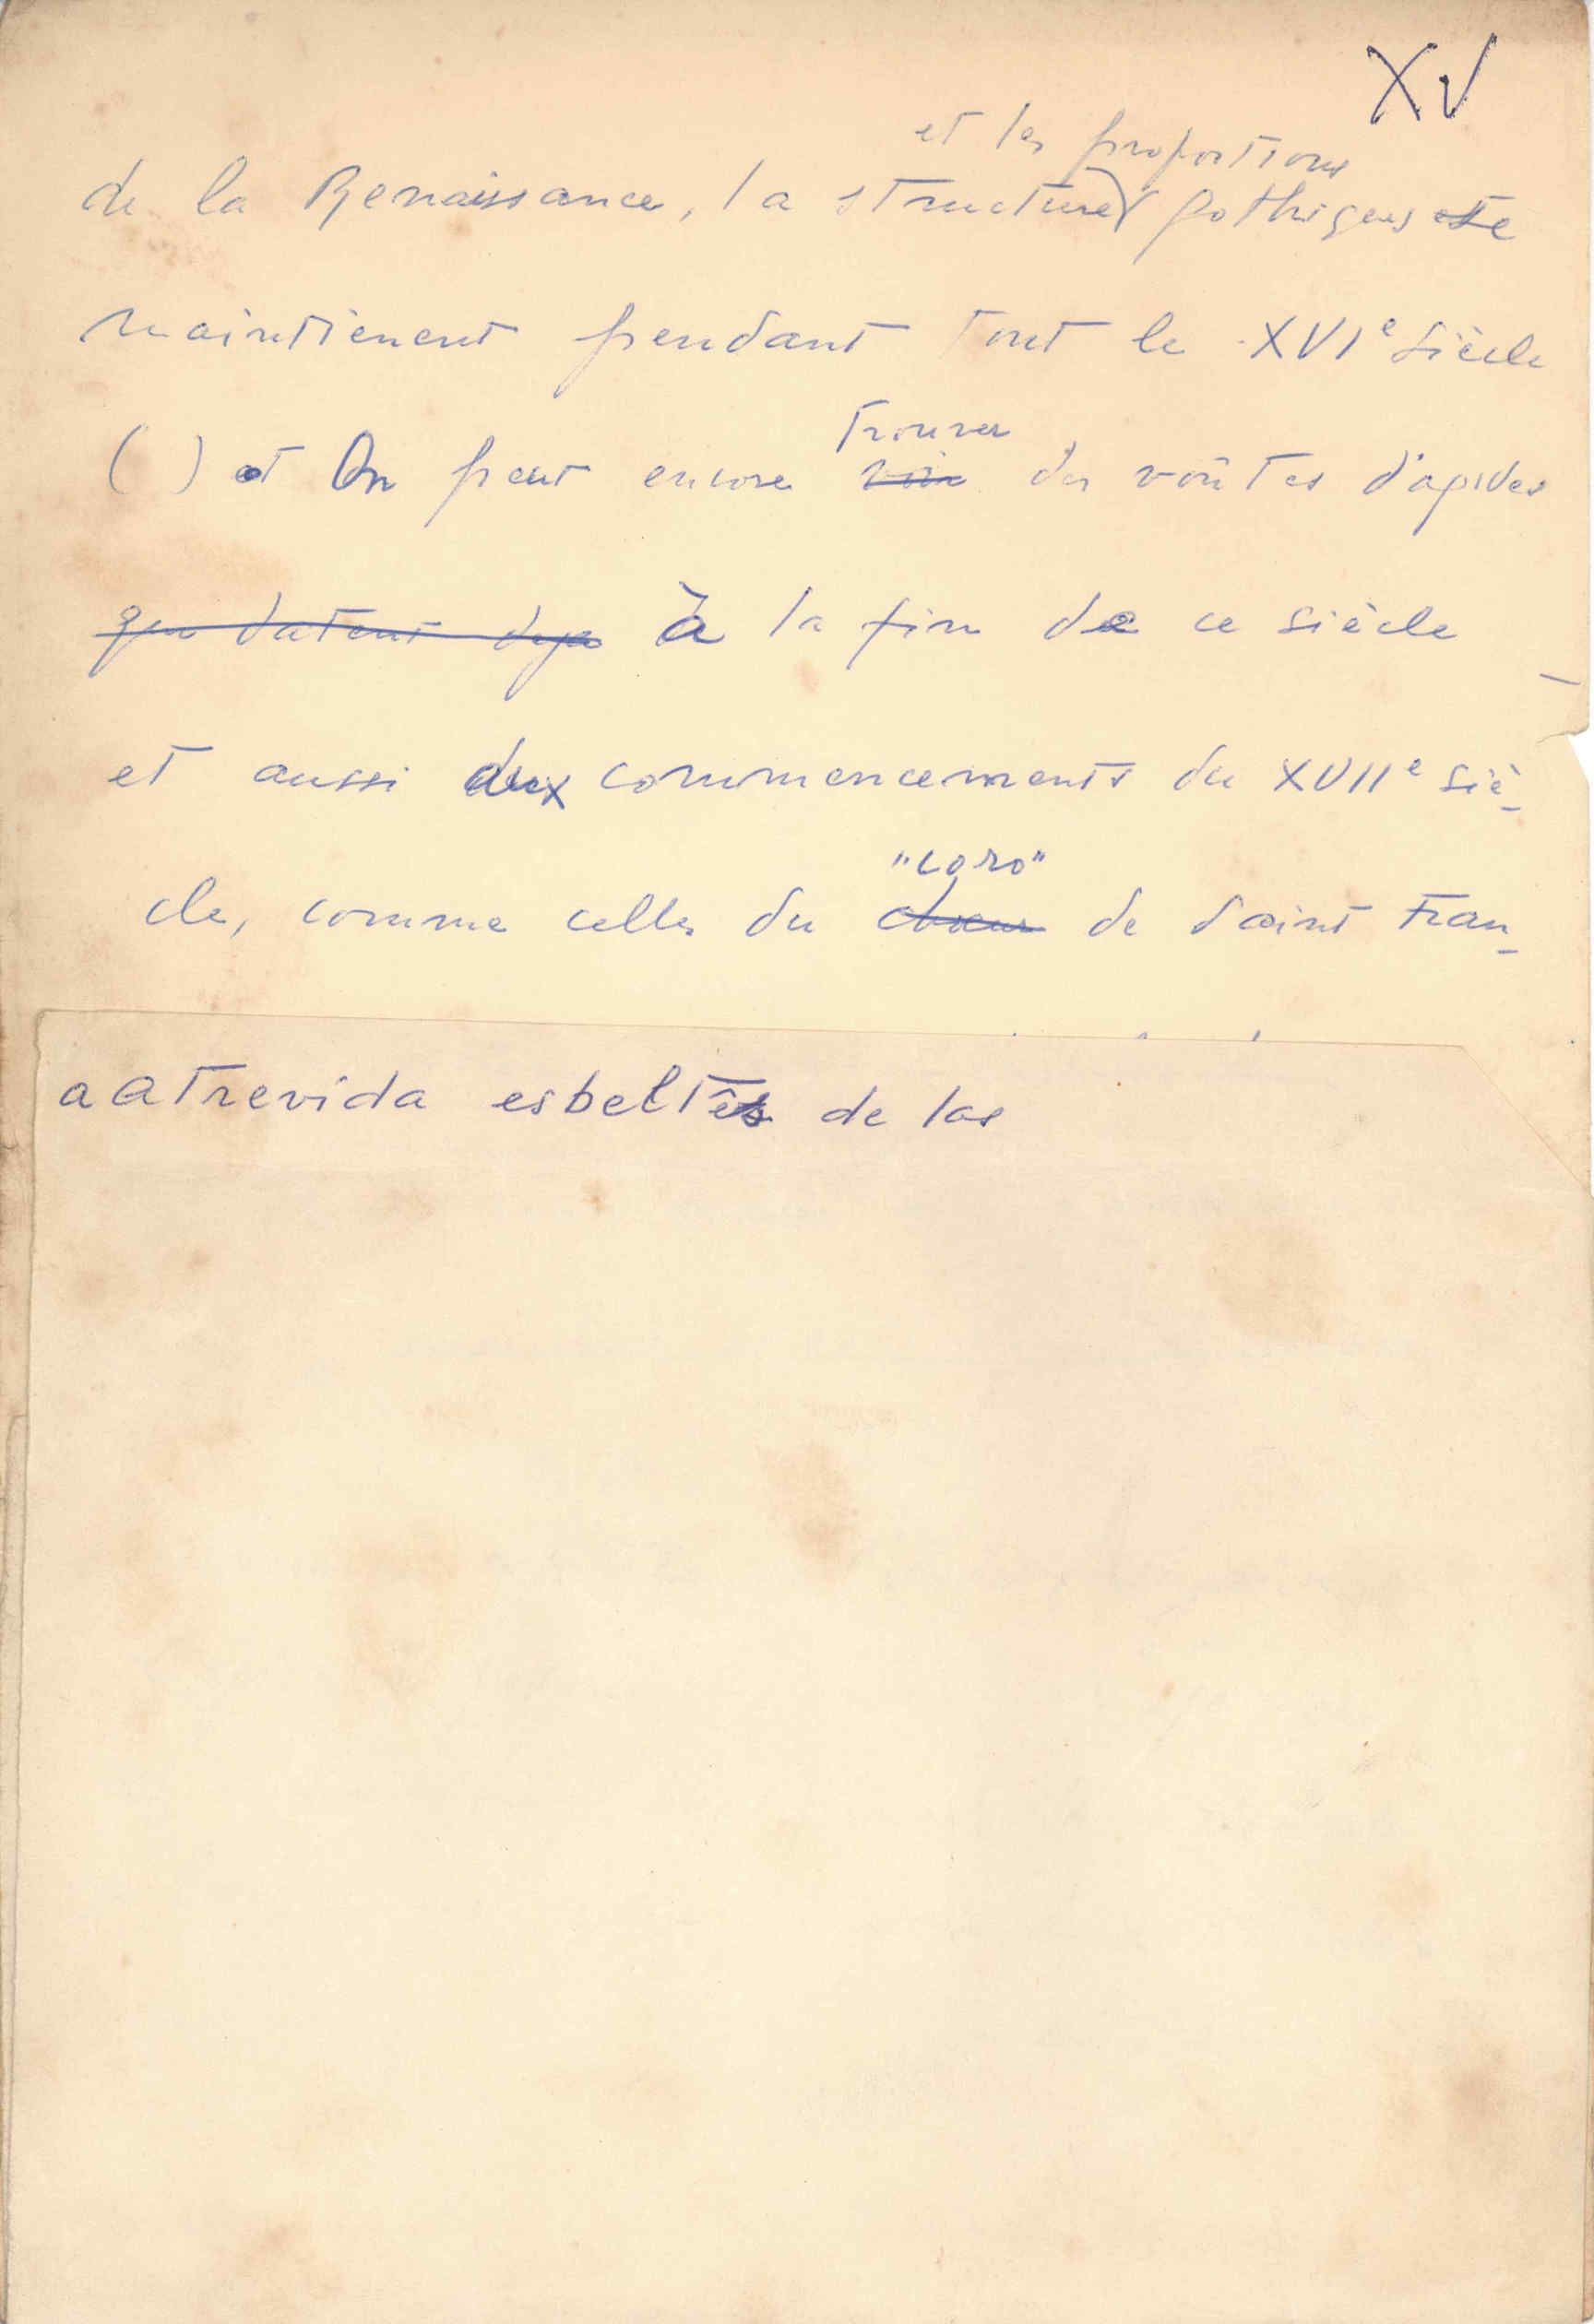 XV
et les proportions
de la Renaissance, la structure gothiques se
maintienent pendant tout le XVIe siècle
trouver
( ) et On peut encore voir des voûtes d'apsides
que datent deja à la fin de ce siècle
et aussi aux commencements du XVIIe siè-
"coro"
cle, comme celles du choeur de saint Fran-
a atrevida esbeltês de las